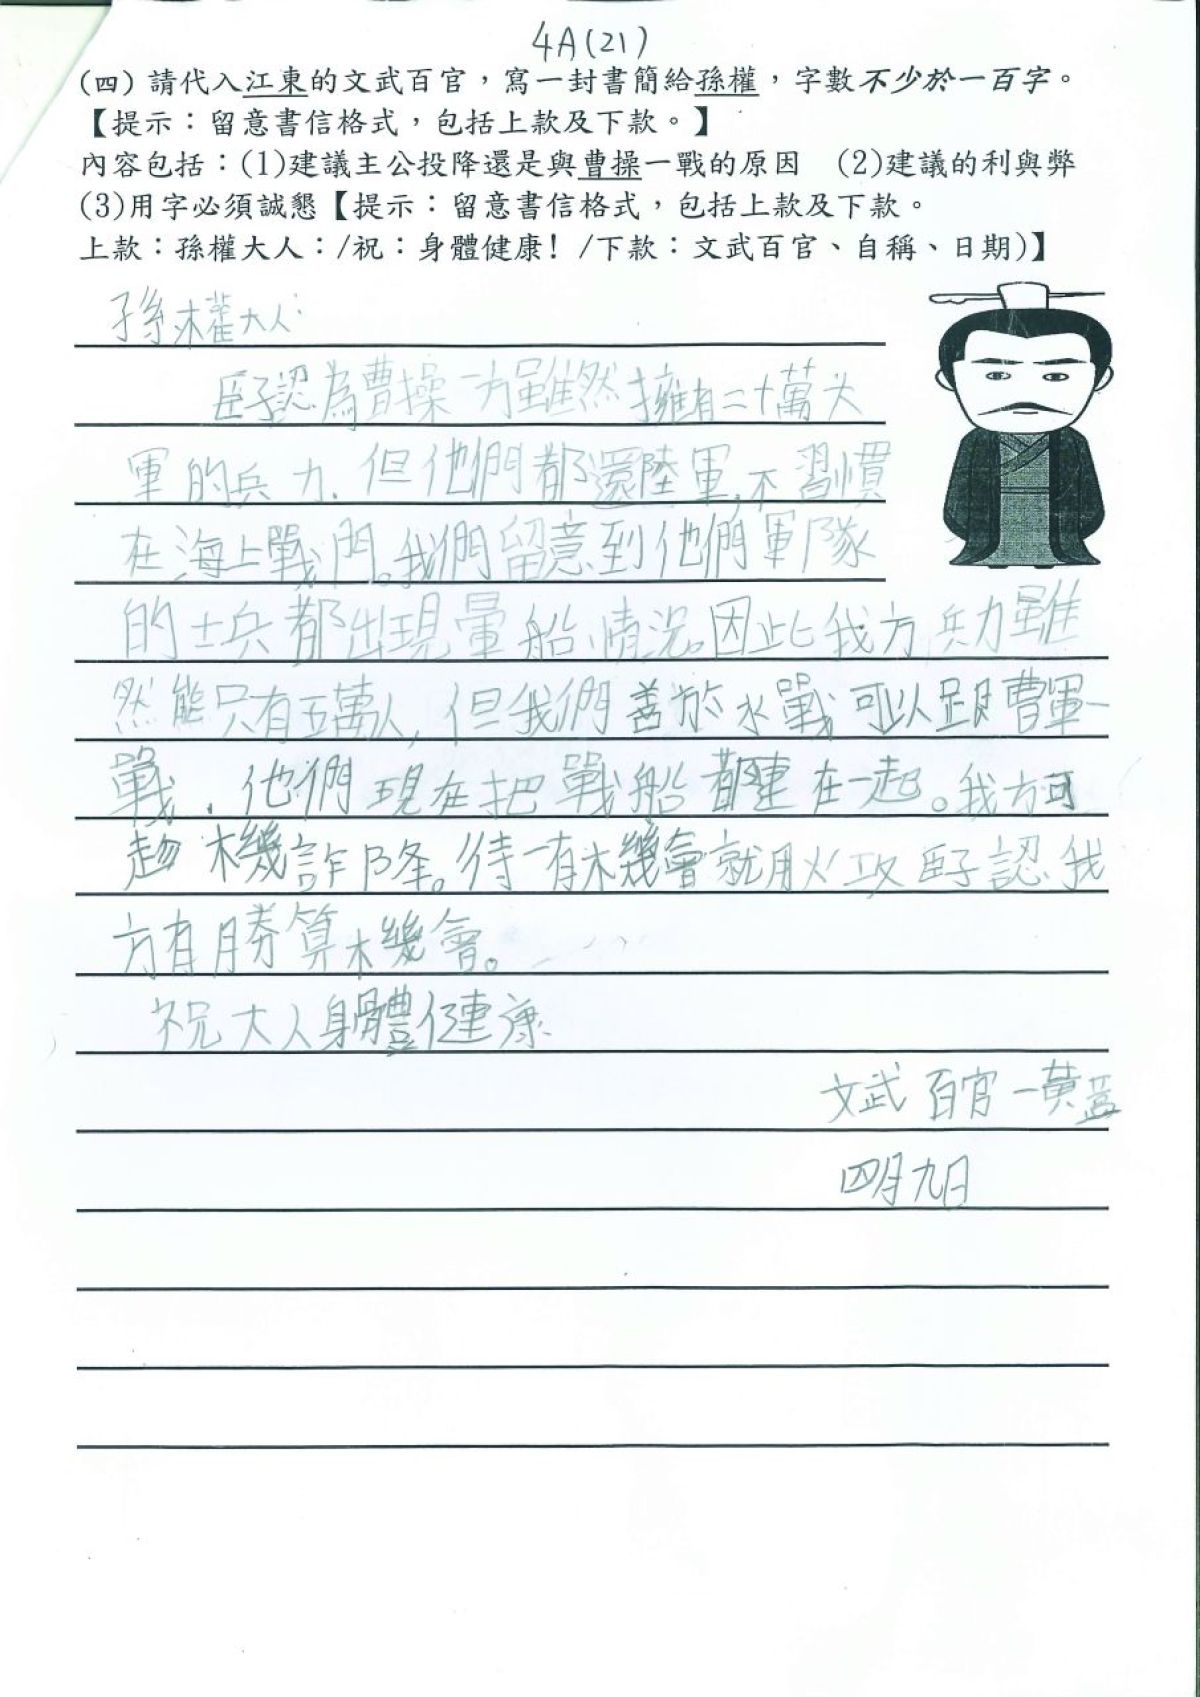 4A(21)
(四) 請代入江東的文武百官，寫一封書簡給孫權，字數不少於一百字。
【提示：留意書信格式，包括上款及下款。】
內容包括：(1)建議主公投降還是與曹操一戰的原因　(2)建議的利與弊
(3)用字必須誠懇【提示：留意書信格式，包括上款及下款。
上款：孫權大人：/祝：身體健康！/下款：文武百官、自稱、日期)】
孫權大人：
臣子認為曹操一方雖然擁有二十萬大
軍的兵力，但他們都還陸軍，不習慣
在海上戰鬥。我們留意到他們軍隊
的士兵都出現暈船情況。因此我方兵力雖
然能只有五萬人，但我們善於水戰，可以跟曹軍一
戰，他們現在把戰船都連在一起。我方可
趁機詐降。待一有機會就用火攻臣子認我
方有勝算機會。
祝大人身體健康
文武百官一黃蓋
四月九日